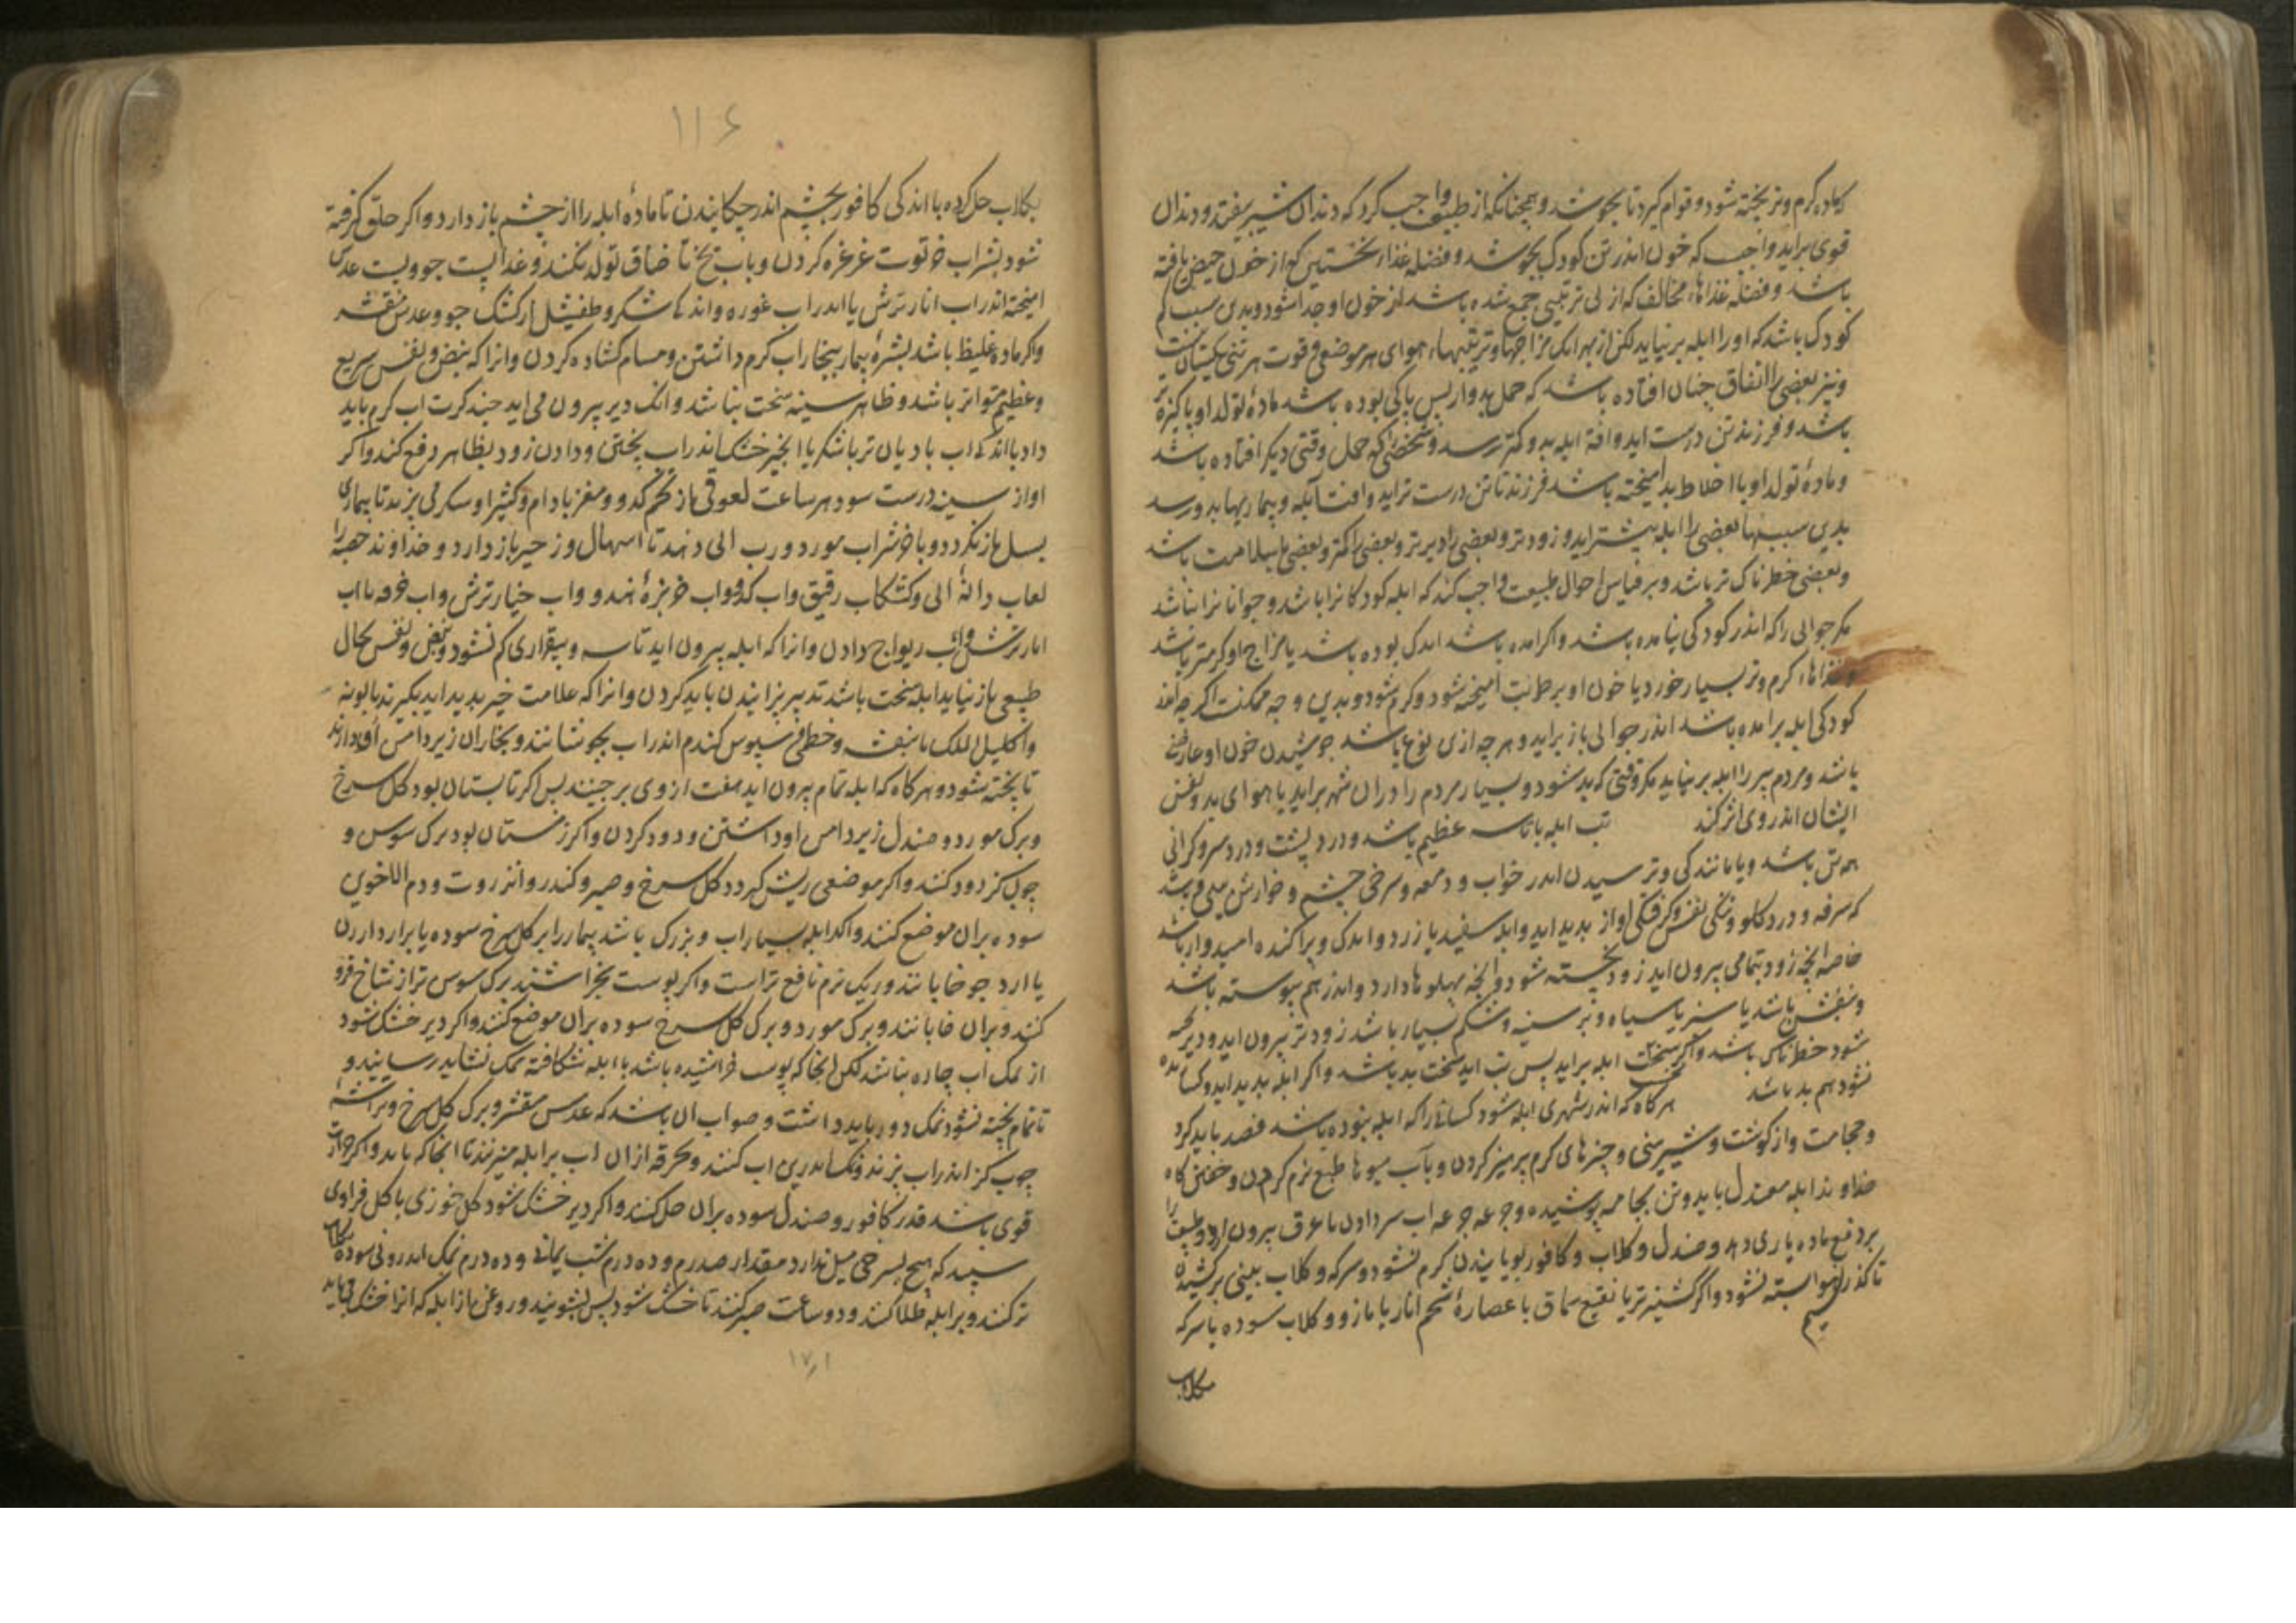 که ماده گرم و تر پخته شود و قوام گیرد تا بجوشد و همچنانکه از طبیعت واجب کرد که دندان شیر بیفتد و دندان
قوی براید واجب که خون اندر تن کودک بجوشد و فضله غذاء نخستین که از خون حیض یافته
باشد و فضله غذاهاء مخالف که از بی ترتیبی جمع شده باشد از خون او جدا شود و بدین سبب کم
کودک باشد که او را ابله برنیاید لکن از بهر انک مزاجها و ترتیبها و هوای هر موضعی و قوت هر تنی یکسان نیست
و نیز بعضی را اتفاق چنان افتاده باشد که حمل بدو از پس پاکی بوده باشد ماده تولد او پاکیزه تر
باشد و فرزند تن درست اید و افة ابله بدو کمتر رسد و شخصی که حمل وقتی دیکر افتاده باشد
و ماده تولد او با اخلاط بد امیخته باشد فرزند نا تن درست تر اید و افت ابله و بیماریها بدو رسد
بدین سببها بعضی را ابله بیشتر اید و زودتر و بعضی را دیرتر و بعضی را کمتر و بعضی با سلامت باشد
و بعضی خطرناک تر باشد و بر قیاس احوال طبیعت واجب کند که ابله کودکانرا باشد و جوانانرا نباشد
مکر جوانی را که اندر کودکی نیامده باشد و اکر امده باشد اندک بوده باشد یا مزاج او کرمتر باشد
و غذاهاء کرم و تر بسیار خورد یا خون او برطوبت امیخته شود و کرم شود و بدین وجه ممکنست اکر چه اندر
کودکی ابله برامده باشد اندر جوانی باز براید و هر چه ازین نوع باشد جوشیدن خون او عارضی
باشد و مردم پیر را ابله برنیاید مکر وقتی که بد شود و بسیار مردم را در ان شهر براید یا هوای بد و نفس
ایشان اندر وی اثر کند تب ابله با تاسه عظیم باشد و درد پشت و درد سر و کرانی
همه تن باشد و یا ماندکی و ترسیدن اندر خواب و دمعه و سرخی چشم و خوارش بینی و باشد
که سرفه و درد کلو و تنکی نفس و کرفتکی اواز بدید اید و ابله سفید یا زرد و اندک و پراکنده امیدوار باشد
خاصه انچه زود بتمامی بیرون اید زود پخته شود و انچه پهلوها دارد و اندر هم پیوسته باشد
و بنفش باشد یا سبز یا سیاه و بر سینه و شکم بسیار باشد زودتر بیرون اید و دیر پخته
شود خطرناک باشد و اکر نخست ابله براید پس تب اید سخت بد باشد و اکر ابله بدید اید و کشاده
نشود هم بد باشد هر کاه که اندر شهری ابله شود کسانی را که ابله نبوده باشد فصد باید کرد
و حجامت و از کوشت و شیرینی و چیزهای کرم پرهیز کردن و باب میوها طبع نرم کردن و خفتن کاه
خداوند ابله معتدل باید و تن بجامه پوشیده و جرعه جرعه اب سرد دادن تا عرق بیرون ارد و طبیعت را
بر دفع ماده یاری دهد و صندل و کلاب و کافور بویانیدن کرم نشود و سرکه و کلاب ببینی برکشیدن
تا کذر هوا بسته نشود و اکر کشنیز تر یا نقیع سماق با عصاره شحم انار یا مازو و کلاب سوده یا سرکه
نسیم
بکلاب
۱۱۶
بکلاب حل کرده با اندکی کافور بچشم اندر چکانیدن تا ماده ابله را از چشم باز دارد و اکر حلق کرفته
شود بشراب خرتوت غرغره کردن و باب یخ تا خناق تولد نکند و غذا پست جو و پست عدس
امیخته اندر اب انار ترش یا اندر اب غوره و اندکی شکر و طفیشل از کشک جو و عدس مقشر
و اکر ماده غلیظ باشد بشره بیمار ببخار اب کرم داشتن و مسام کشاده کردن و انرا که نبض و نفس سریع
و عظیم و متواتر باشد و ظاهر سینه سخت نباشد و انک دیر بیرون می اید چند کرت اب کرم باید
داد با اندکی اب بادیان تر با شکر یا انجیر خشک اندر اب پختن و دادن زود بظاهر دفع کند و اکر
اواز سینه درست شود هر ساعت لعوقی از تخم کدو و مغز بادام و کثیرا و شکر می پزند تا بیماری
بسل باز نکردد و با خر شراب مورد و رب ابی دهند تا اسهال و زحیر باز دارد و خداوند حصبه را
لعاب دانه ابی و کشکاب رقیق و اب کدو و اب خربزه هندو و اب خیار ترش و اب خرفه با اب
انار ترش و اب ریواج دادن و انرا که ابله بیرون اید تاسه و بیقراری کم نشود و نبض و نفس بحال
طبیعی باز نیاید ابله سخت باشد تدبیر پزانیدن باید کردن و انرا که علامت خیر بدید اید بکیرند بابونه
و اکلیل الملک با بنفشه و خطمی و سپوس کندم اندر اب بجوشانند و بخار ان زیر دامن او دارند
تا پخته شود و هر کاه که ابله تمام بیرون اید هفت از وی برچینند پس اکر تابستان بود کل سرخ
و برک مورد و صندل زیر دامن او داشتن و دود کردن و اکر زمستان بود برک سوس و
چوب کز دود کنند و اکر موضعی ریش کردد کل سرخ و صبر و کندر و انزروت و دم الاخوین
سوده بران موضع کنند و اکر ابله سیراب و بزرک باشد بیمار را بر کل سرخ سوده یا بر ارد ارزن
یا ارد جو خابانند و ریک نرم نافع تر است و اکر پوست بخراشند برک سوس تر از شاخ فرو
کنند و بران خابانند و برک مورد و برک کل سرخ سوده بران موضع کنند و اکر دیر خشک شود
از نمک اب چاره نباشد لکن انجا که پوست خراشیده باشد یا ابله شکافته نمک نشاید رسانید و
تا تمام پخته نشود نمک دور باید داشت و صواب ان باشد که عدس مقشر و برک کل سرخ و تراشه
چوب کز اندر اب بپزند و نمک اندرین اب کنند و خرقه از ان اب بر ابله میزنند تا انجا که باید و اکر حرارت
قوی باشد قدری کافور و صندل سوده بران حل کنند و اکر دیر خشک شود کل خوزی یا کل فراوی
سپید که هیچ بسرخی میل ندارد مقدار صد درم و ده درم شب یمانی و ده درم نمک اندرونی سوده بکلاب
تر کنند و بر ابله طلا کنند و دو ساعت صبر کنند تا خشک شود پس بشویند و روغن از ابله که انرا خشک می باید